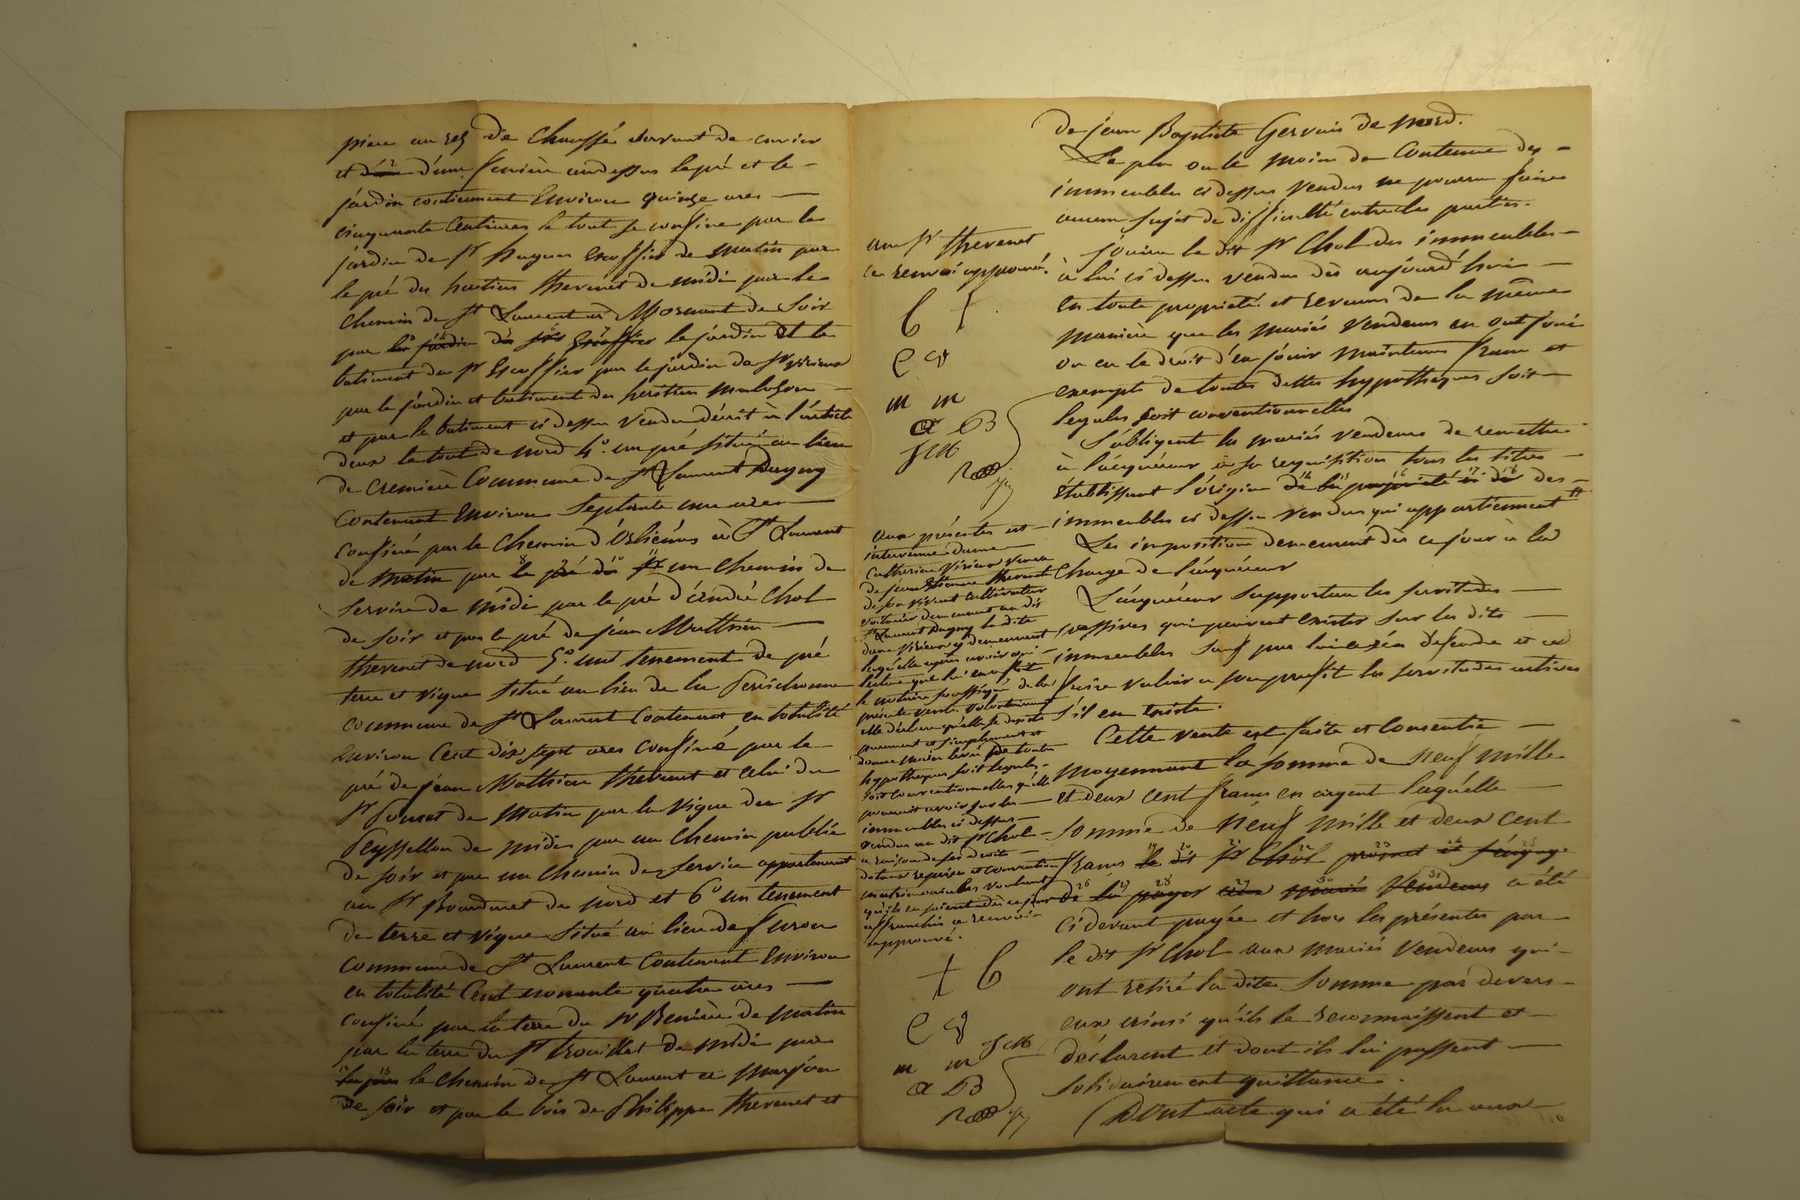 pièce au rez de Chaussée servant de cuvier
et d'une fenière au dessus le pré et le
jardin contiennent Environ quinze ares
cinquante Centiares le tout se confine par le
jardin de Sr hugues Escoffier de matin par
le pré des héritiers thevenet de midi par le
Chemin de St Laurent à Mornant de Soir
par le jardin du Sr Escoffier le jardin Et le
batiment du Sr Escoffier par le jardin de Sr
par le jardin et batiment des héritiers
et par le batiment ci dessus Vendu décrit à l'article
deux le tout de nord 4° un pré situé au lieu
de Cremière Commune de St Laurent Dagny
Contenant Environ Septante une ares
Confiné par le Chemin d'Orliénas à St Laurent
de Matin par le pré du Sr un Chemin de
Service de Midi par le pré d'André Chol
de Soir et par le pré de jean Mathieu
thevenet de nord 5° un tenement de pré
terre et Vigne Situé au lieu de la
commune de St Laurent Contenant en totalité
Environ Cent dix sept ares confiné par le
pré de jean Mathieu thevenet et celui du
Sr de Matin par la Vigne du Sr
Peyssellon de midi par un Chemin public
de Soir et par un Chemin de Service appartenant
au Sr de nord et 6° un tenement
de terre et Vigne Situé au lieu de
commune de St Laurent Contenant Environ
en totalité Cent nonante quatre ares
confiné par la terre du Sr de matin
par la terre du Sr trouillet de Midi par
le chemin de St Laurent à
de Soir et par le bois de Philippe thevenet et
au Sr thevenet
ce renvoi approuvé.
C t
e v
m m
a B
J M
aux présentes est
intervenue dame
Catherine Veuve
de jean thevenet
de son Vivant cultivateur
demeurant au dit
St Laurent Dagny la dite
dame y demeurant
laquelle après avoir oui
lecture que lui en a fait
le notaire soussigné de la
présente vente volontairement
elle déclare qu'elle se desiste
purement et simplement et
donne main levée de toutes
hypothèques soit legales
soit conventionnelles qu'elle
pourrait avoir sur les
immeubles ci dessus
vendus au dit Sr Chol
à raison de ses droits
dotaux reprises et conventions
matrimoniales voulant
qu'ils en soient dès ce jour
affranchis ce renvoi
approuvé.
t C
e v
J M
m m
a B
de jean Baptiste Gervais de nord.
Le plus ou le moins de Contenue des
immeubles ci dessus Vendus ne pourra faire
aucun Sujet de difficulté entre les parties.
Jouira le dit Sr Chol des immeubles
à lui ci dessus vendus dès aujourd'hui
en toute propriété et revenus de la même
manière que les mariés Vendeurs en ont joui
ou eu le droit d'en jouir maintenus franc et
exempts de toutes dettes hypothèques soit
legales soit conventionnelles
S'obligent les mariés Vendeurs de remettre
à l'acquéreur à sa requisition tous les titres
établissant l'origine de la propriété des
immeubles ci dessus Vendus qui appartiennent
Les impositions demeurent dès ce jour à la
Charge de l'acquéreur
L'acquéreur Supportera les Servitudes
passives qui peuvent exister Sur les dits
immeubles Sauf par lui à S'en défendre et à
faire Valoir à son profit les servitudes actives
S'il en Existe.
Cette Vente est faite et Consentie
moyennant la somme de Neuf mille
et deux cent francs en argent laquelle
somme de Neuf mille et deux cent
francs le dit Sr Chol promet et s'engage
de la payer aux mariés Vendeurs a été
ci devant payée et hors les présentes par
le dit Sr Chol aux mariés Vendeurs qui
ont retiré la dite Somme par devers
eux ainsi qu'ils le reconnaissent et
déclarent et dont ils lui passent
Solidairement quittance.
Dont acte qui a été lu aux